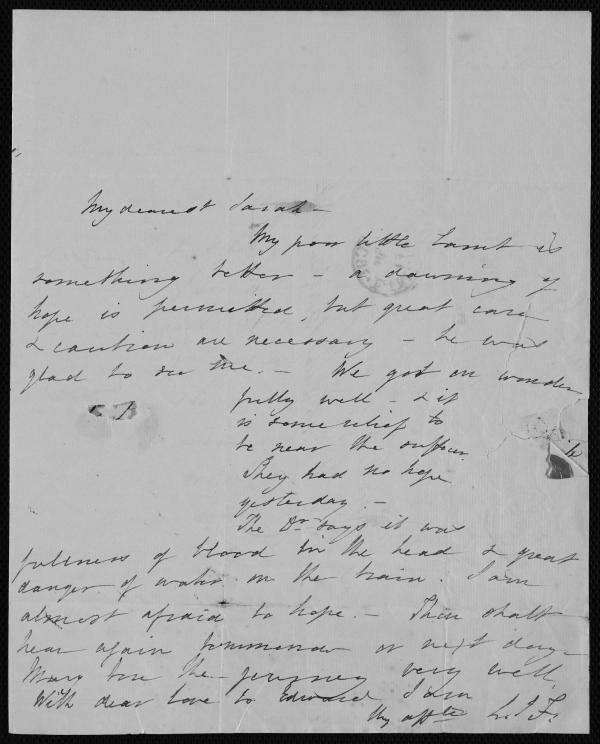 My dearest Sarah -
My poor little Lamb is
something better - a dawning of
hope is permitted, but great care
& caution are necessary - he was
glad to see me. - We got on wonder
fully well - & it
is some relief to
be near the sufferer
They had no hope
yesterday. -
The Dr. says it was
fullness of blood in the head & great
danger of water on the brain. I am
almost afraid to hope. - Thou shalt
hear again tomorrow or next day -
Mary bore the journey very well.
With dear love to Edward I am
thy affte L. J. F.